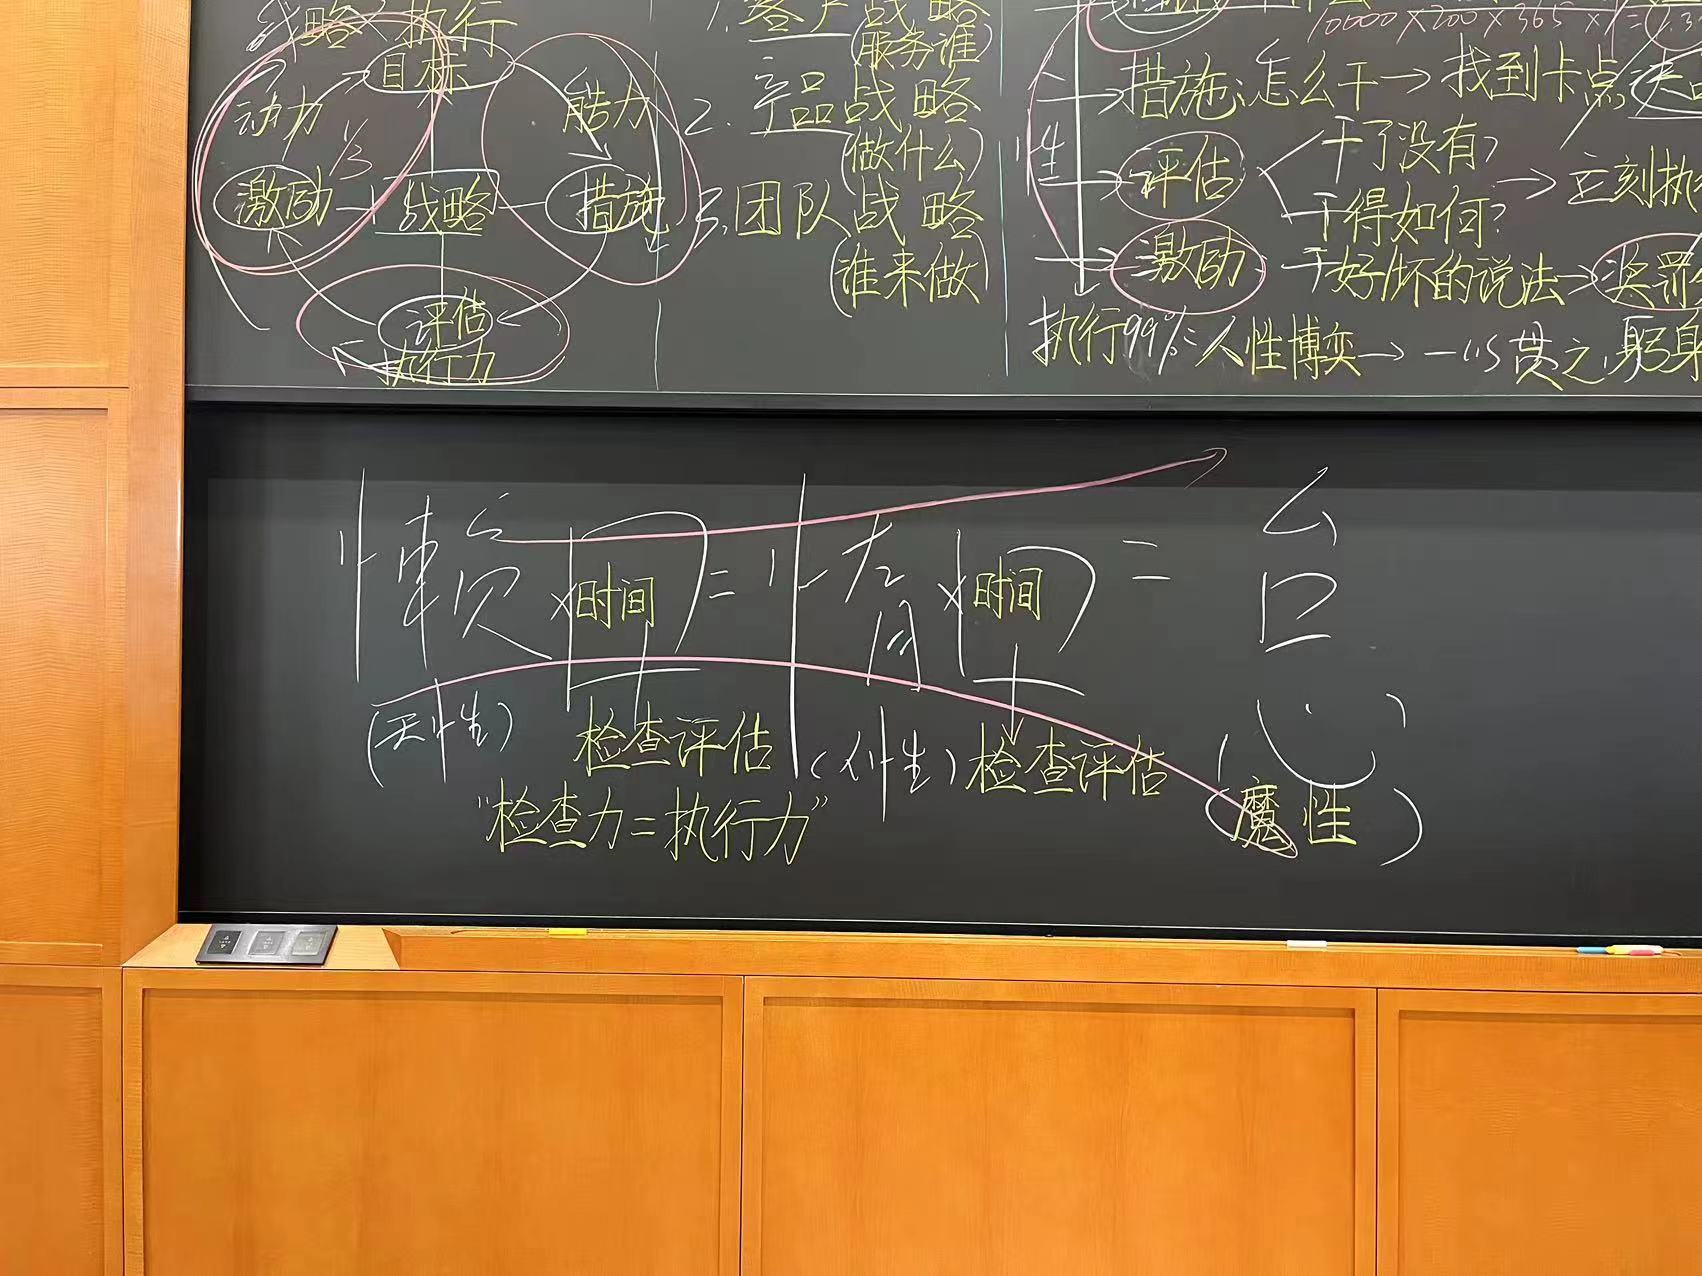 战略×执行
目标
动力
能力
1/3
激励
战略
措施
评估
执行力
1.客户战略
(服务谁)
2.产品战略
(做什么)
3.团队战略
(谁来做)
10000×200×365×1=
措施:怎么干→找到卡点
性
评估
干了没有?
干得如何?
→立刻执
激励
干好/坏的说法→奖罚
执行99%=人性博奕→一以贯之,躬身
懒×时间=惰×时间=怠
(天性)
检查评估
(人性)
检查评估
(魔性)
"检查力=执行力"